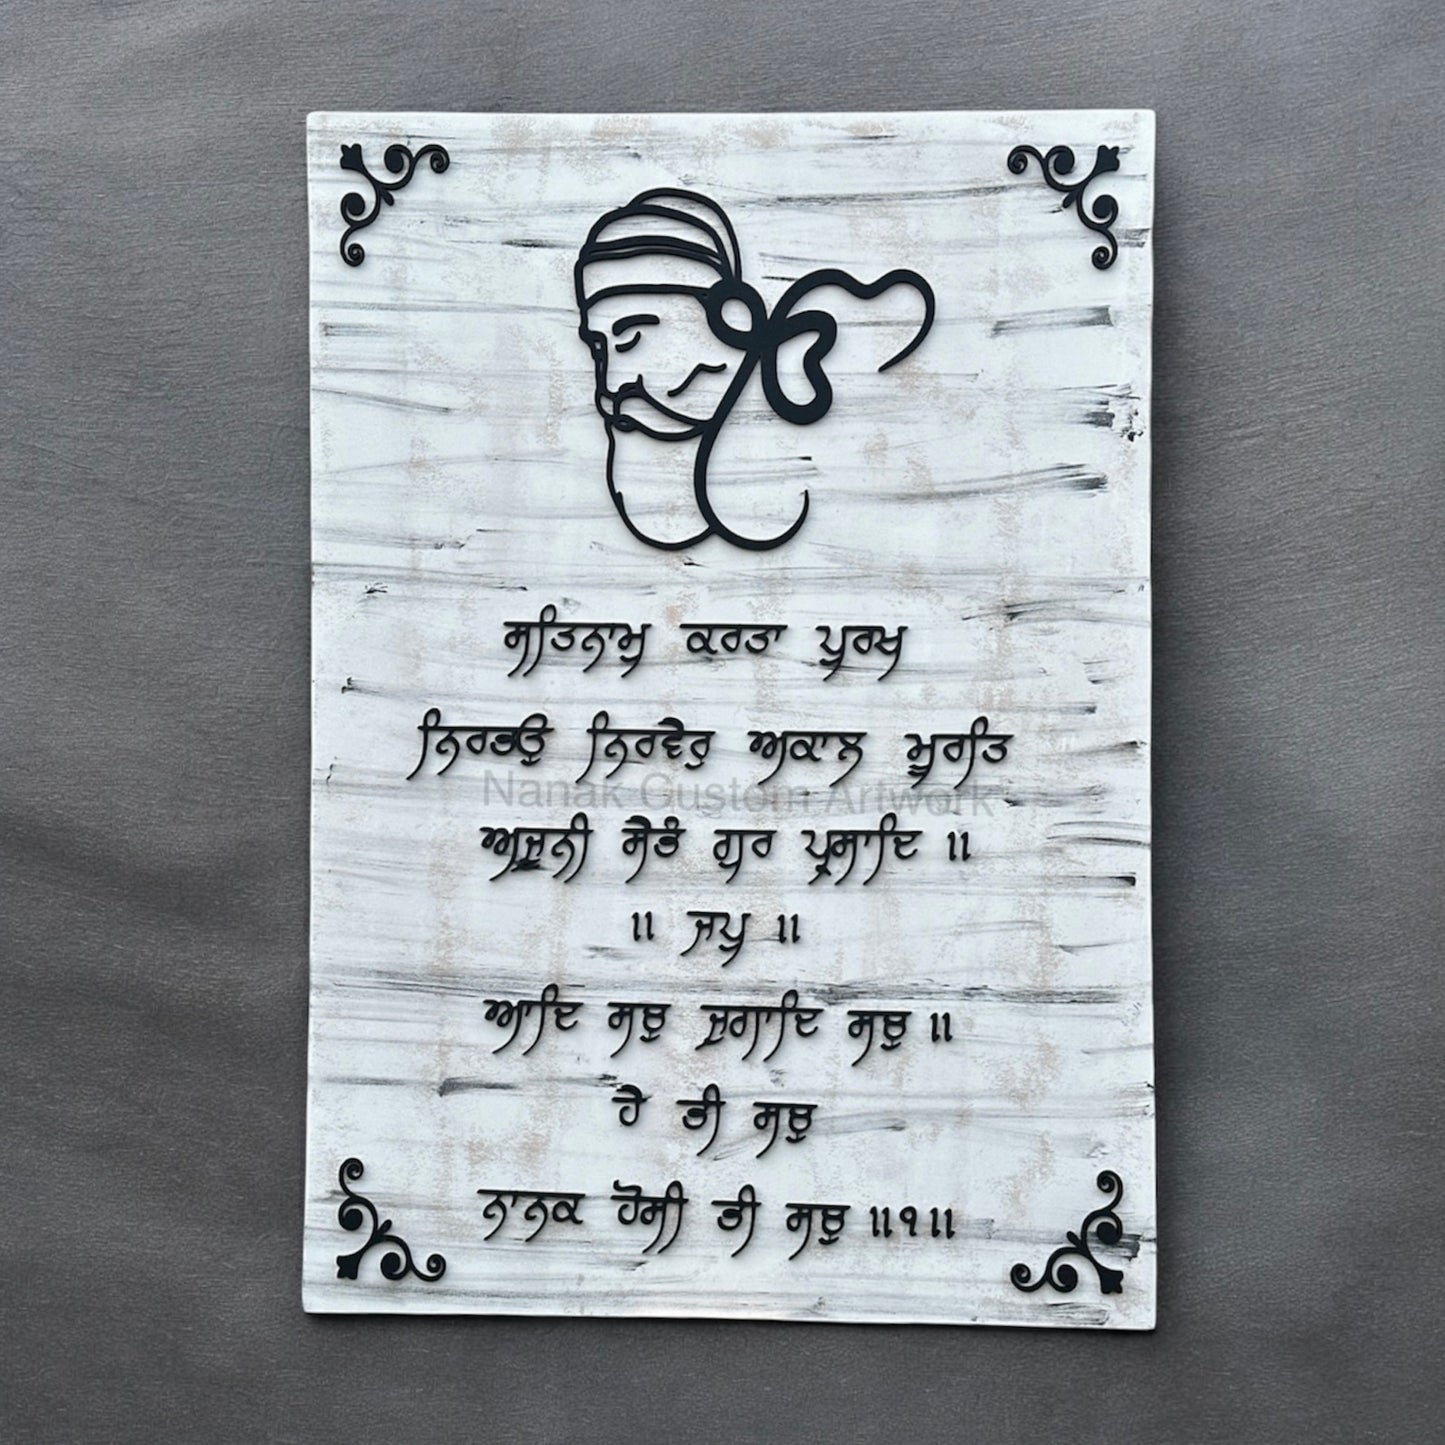 ਸਤਿਨਾਮੁ ਕਰਤਾ ਪੁਰਖੁ
ਨਿਰਭਉ ਨਿਰਵੈਰੁ ਅਕਾਲ ਮੂਰਤਿ
Nanak Custom Artwork
ਅਜੂਨੀ ਸੈਭੰ ਗੁਰ ਪ੍ਰਸਾਦਿ ॥
॥ ਜਪੁ ॥
ਆਦਿ ਸਚੁ ਜੁਗਾਦਿ ਸਚੁ ॥
ਹੈ ਭੀ ਸਚੁ
ਨਾਨਕ ਹੋਸੀ ਭੀ ਸਚੁ ॥੧॥